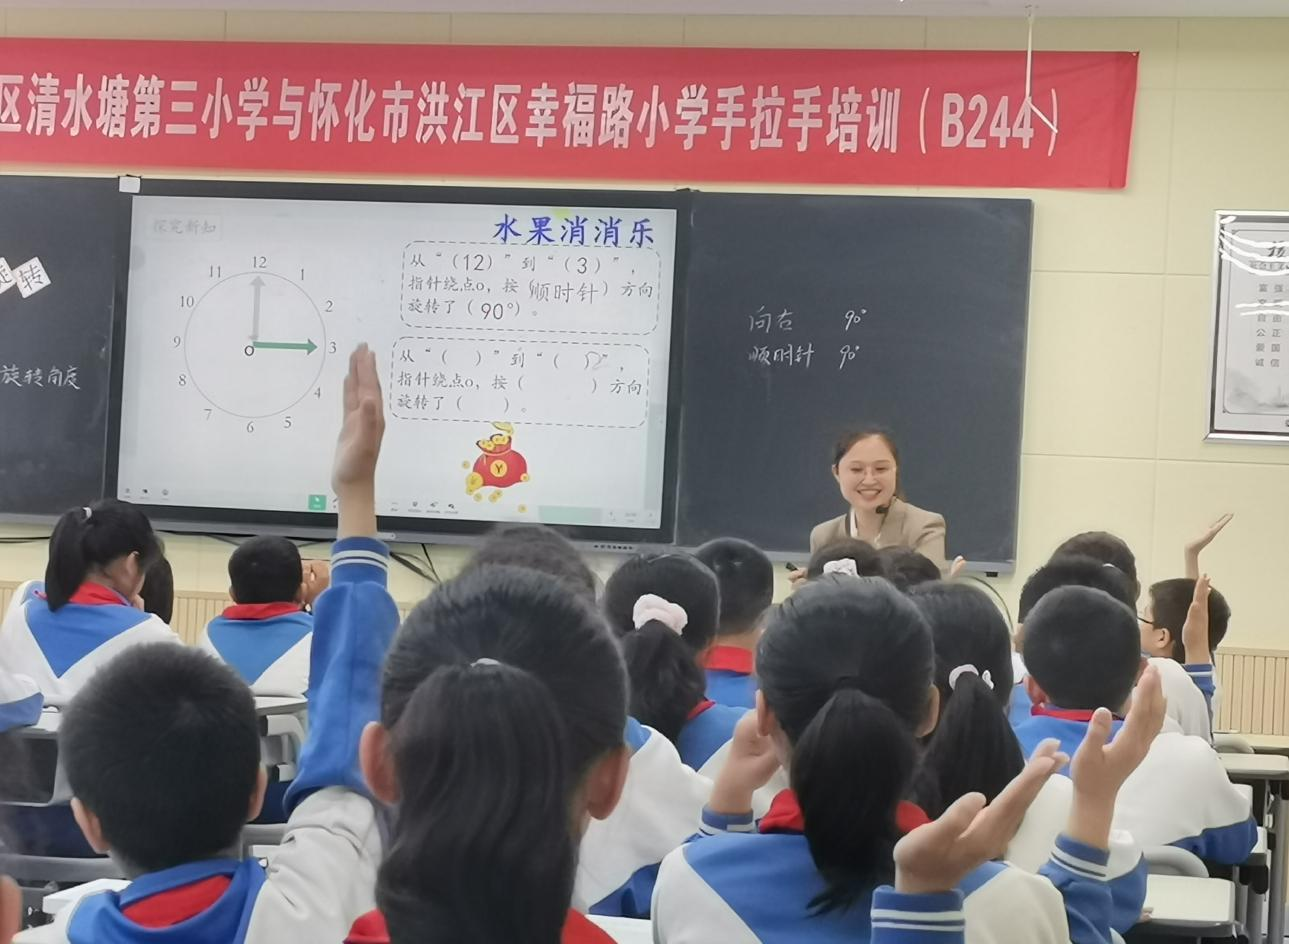 区清水塘第三小学与怀化市洪江区幸福路小学手拉手培训（B244）
转
旋转角度
探究新知
水果消消乐
12
1
2
3
4
5
6
7
8
9
10
11
O
从“（12）”到“（3）”，
指针绕点o，按（顺时针）方向
旋转了（90°）。
从“（ ）”到“（ ）”，
指针绕点o，按（ ）方向
旋转了（ ）。
向右 90°
顺时针 90°
富强
公正
爱国
诚信